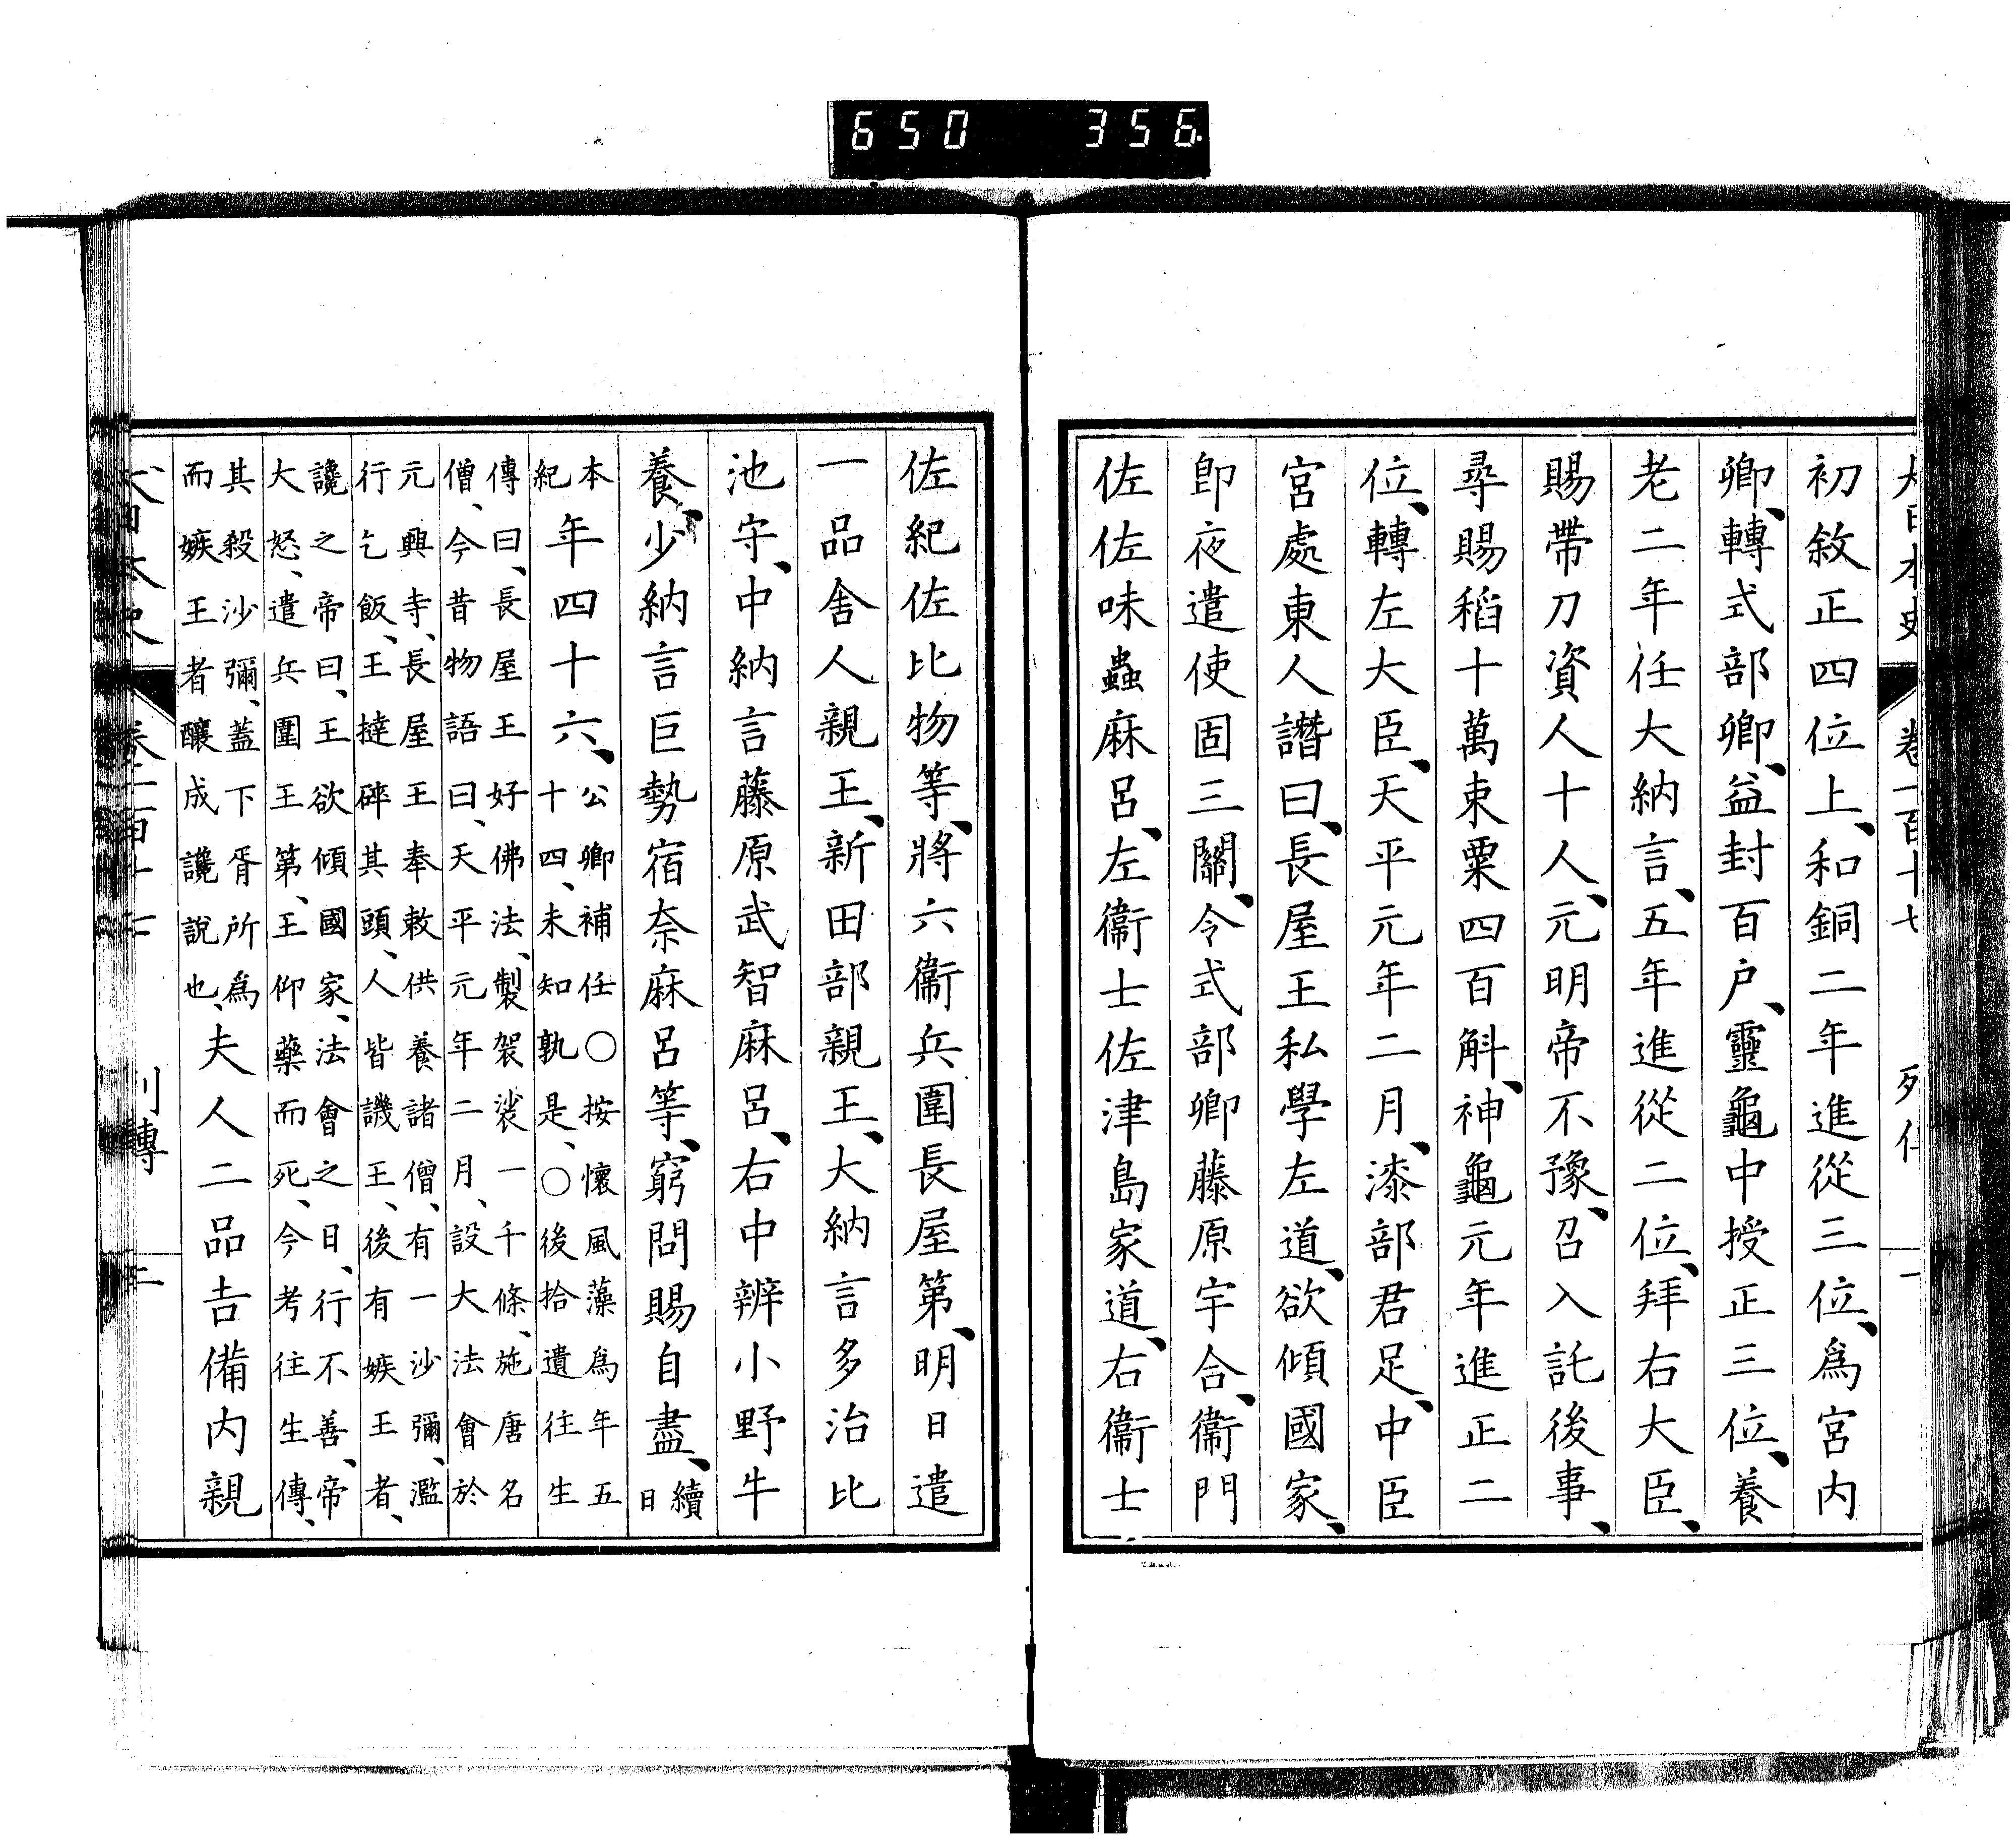 650 356
大日本史 卷一百十七 列傳 一
初敘正四位上、和銅二年進從三位、爲宮内
卿、轉式部卿、益封百戸、靈龜中授正三位、養
老二年任大納言、五年進從二位、拜右大臣、
賜帶刀資人十人、元明帝不豫、召入託後事、
尋賜稻十萬束粟四百斛、神龜元年進正二
位、轉左大臣、天平元年二月、漆部君足、中臣
宮處東人譖曰、長屋王私學左道、欲傾國家、
卽夜遣使固三關、令式部卿藤原宇合、衞門
佐佐味蟲麻呂、左衞士佐津島家道、右衞士
佐紀佐比物等、將六衞兵圍長屋第、明日遣
一品舍人親王、新田部親王、大納言多治比
池守、中納言藤原武智麻呂、右中辨小野牛
養、少納言巨勢宿奈麻呂等、窮問賜自盡、續日
本紀年四十六、公卿補任〇按懷風藻爲年五十四、未知孰是、〇後拾遺往生
傳曰、長屋王好佛法、製袈裟一千條、施唐名
僧、今昔物語曰、天平元年二月、設大法會於
元興寺、長屋王奉敕供養諸僧、有一沙彌、濫
行乞飯、王撻碎其頭、人皆譏王、後有嫉王者、
讒之帝曰、王欲傾國家、法會之日、行不善、帝
大怒、遣兵圍王第、王仰藥而死、今考往生傳、
其殺沙彌、蓋下胥所爲
而嫉王者釀成讒說也、夫人二品吉備内親
大日本史 卷一百十七 列傳 二